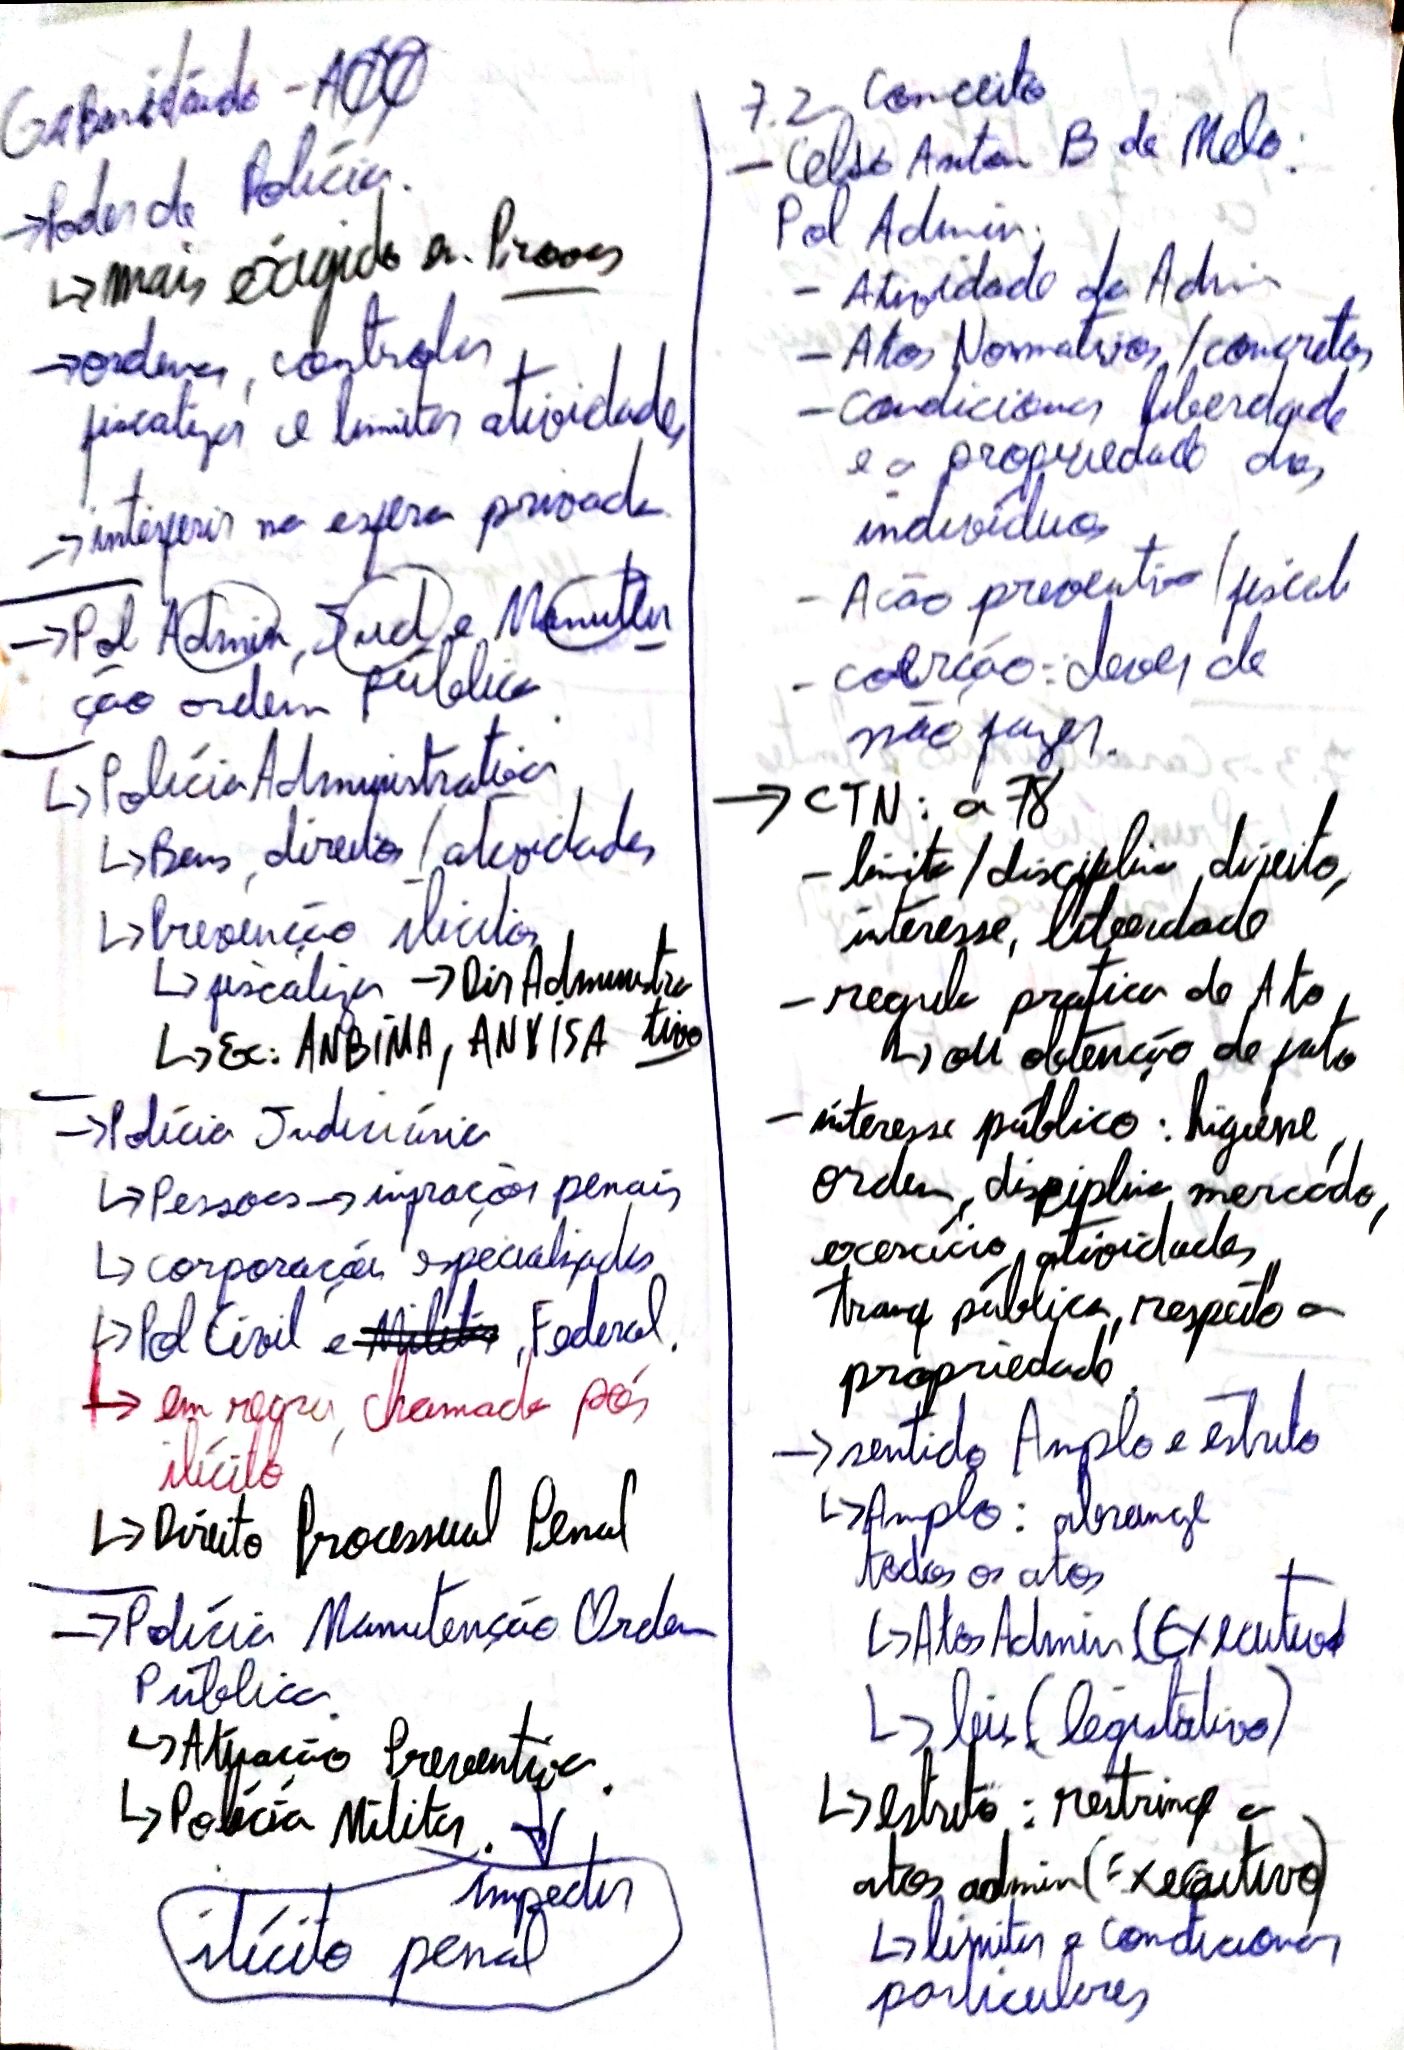 Gabaritando - A00
→ Poder de Polícia.
↳ mais exigido em Provas
→ ordenar, controlar
fiscalizar e limitar atividades
→ interferir na esfera privada
→ Pol Admin, Jud e Manuten
ção ordem pública.
↳ Polícia Administrativa
↳ Bens, direitos / atividades
↳ Prevenção ilícitos
↳ fiscalizar → Dir Administra
tivo
↳ Ex: ANBIMA, ANVISA
→ Polícia Judiciária
↳ Pessoas → infrações penais
↳ corporações especializadas
↳ Pol Civil e Militar, Federal.
↳ em regra, chamada pós
ilícito
↳ Direito Processual Penal
→ Polícia Manutenção Ordem
Pública.
↳ Atuação Preventiva.
↳ Polícia Militar.
impedir
ilícito penal
7.2 Conceito
- Celso Anton B de Melo:
Pol Admin.
- Atividade da Admin
- Atos Normativos / concretos
- condicionar liberdade
e a propriedade dos
indivíduos
- Ação preventiva / fiscal
- coerção: dever de
não fazer.
→ CTN: a 78
- limita / disciplina direito,
interesse, liberdade
- regula prática de Ato
↳ ou abstenção de fato
- interesse público: higiene,
ordem, disciplina mercado,
exercício atividades,
tranq pública, respeito a
propriedade.
→ sentido Amplo e estrito
↳ Amplo: abrange
todos os atos
↳ Atos Admin (Executivo)
↳ leis (legislativo)
↳ estrito: restringe a
atos admin (Executivo)
↳ limitar e condicionar
particulares